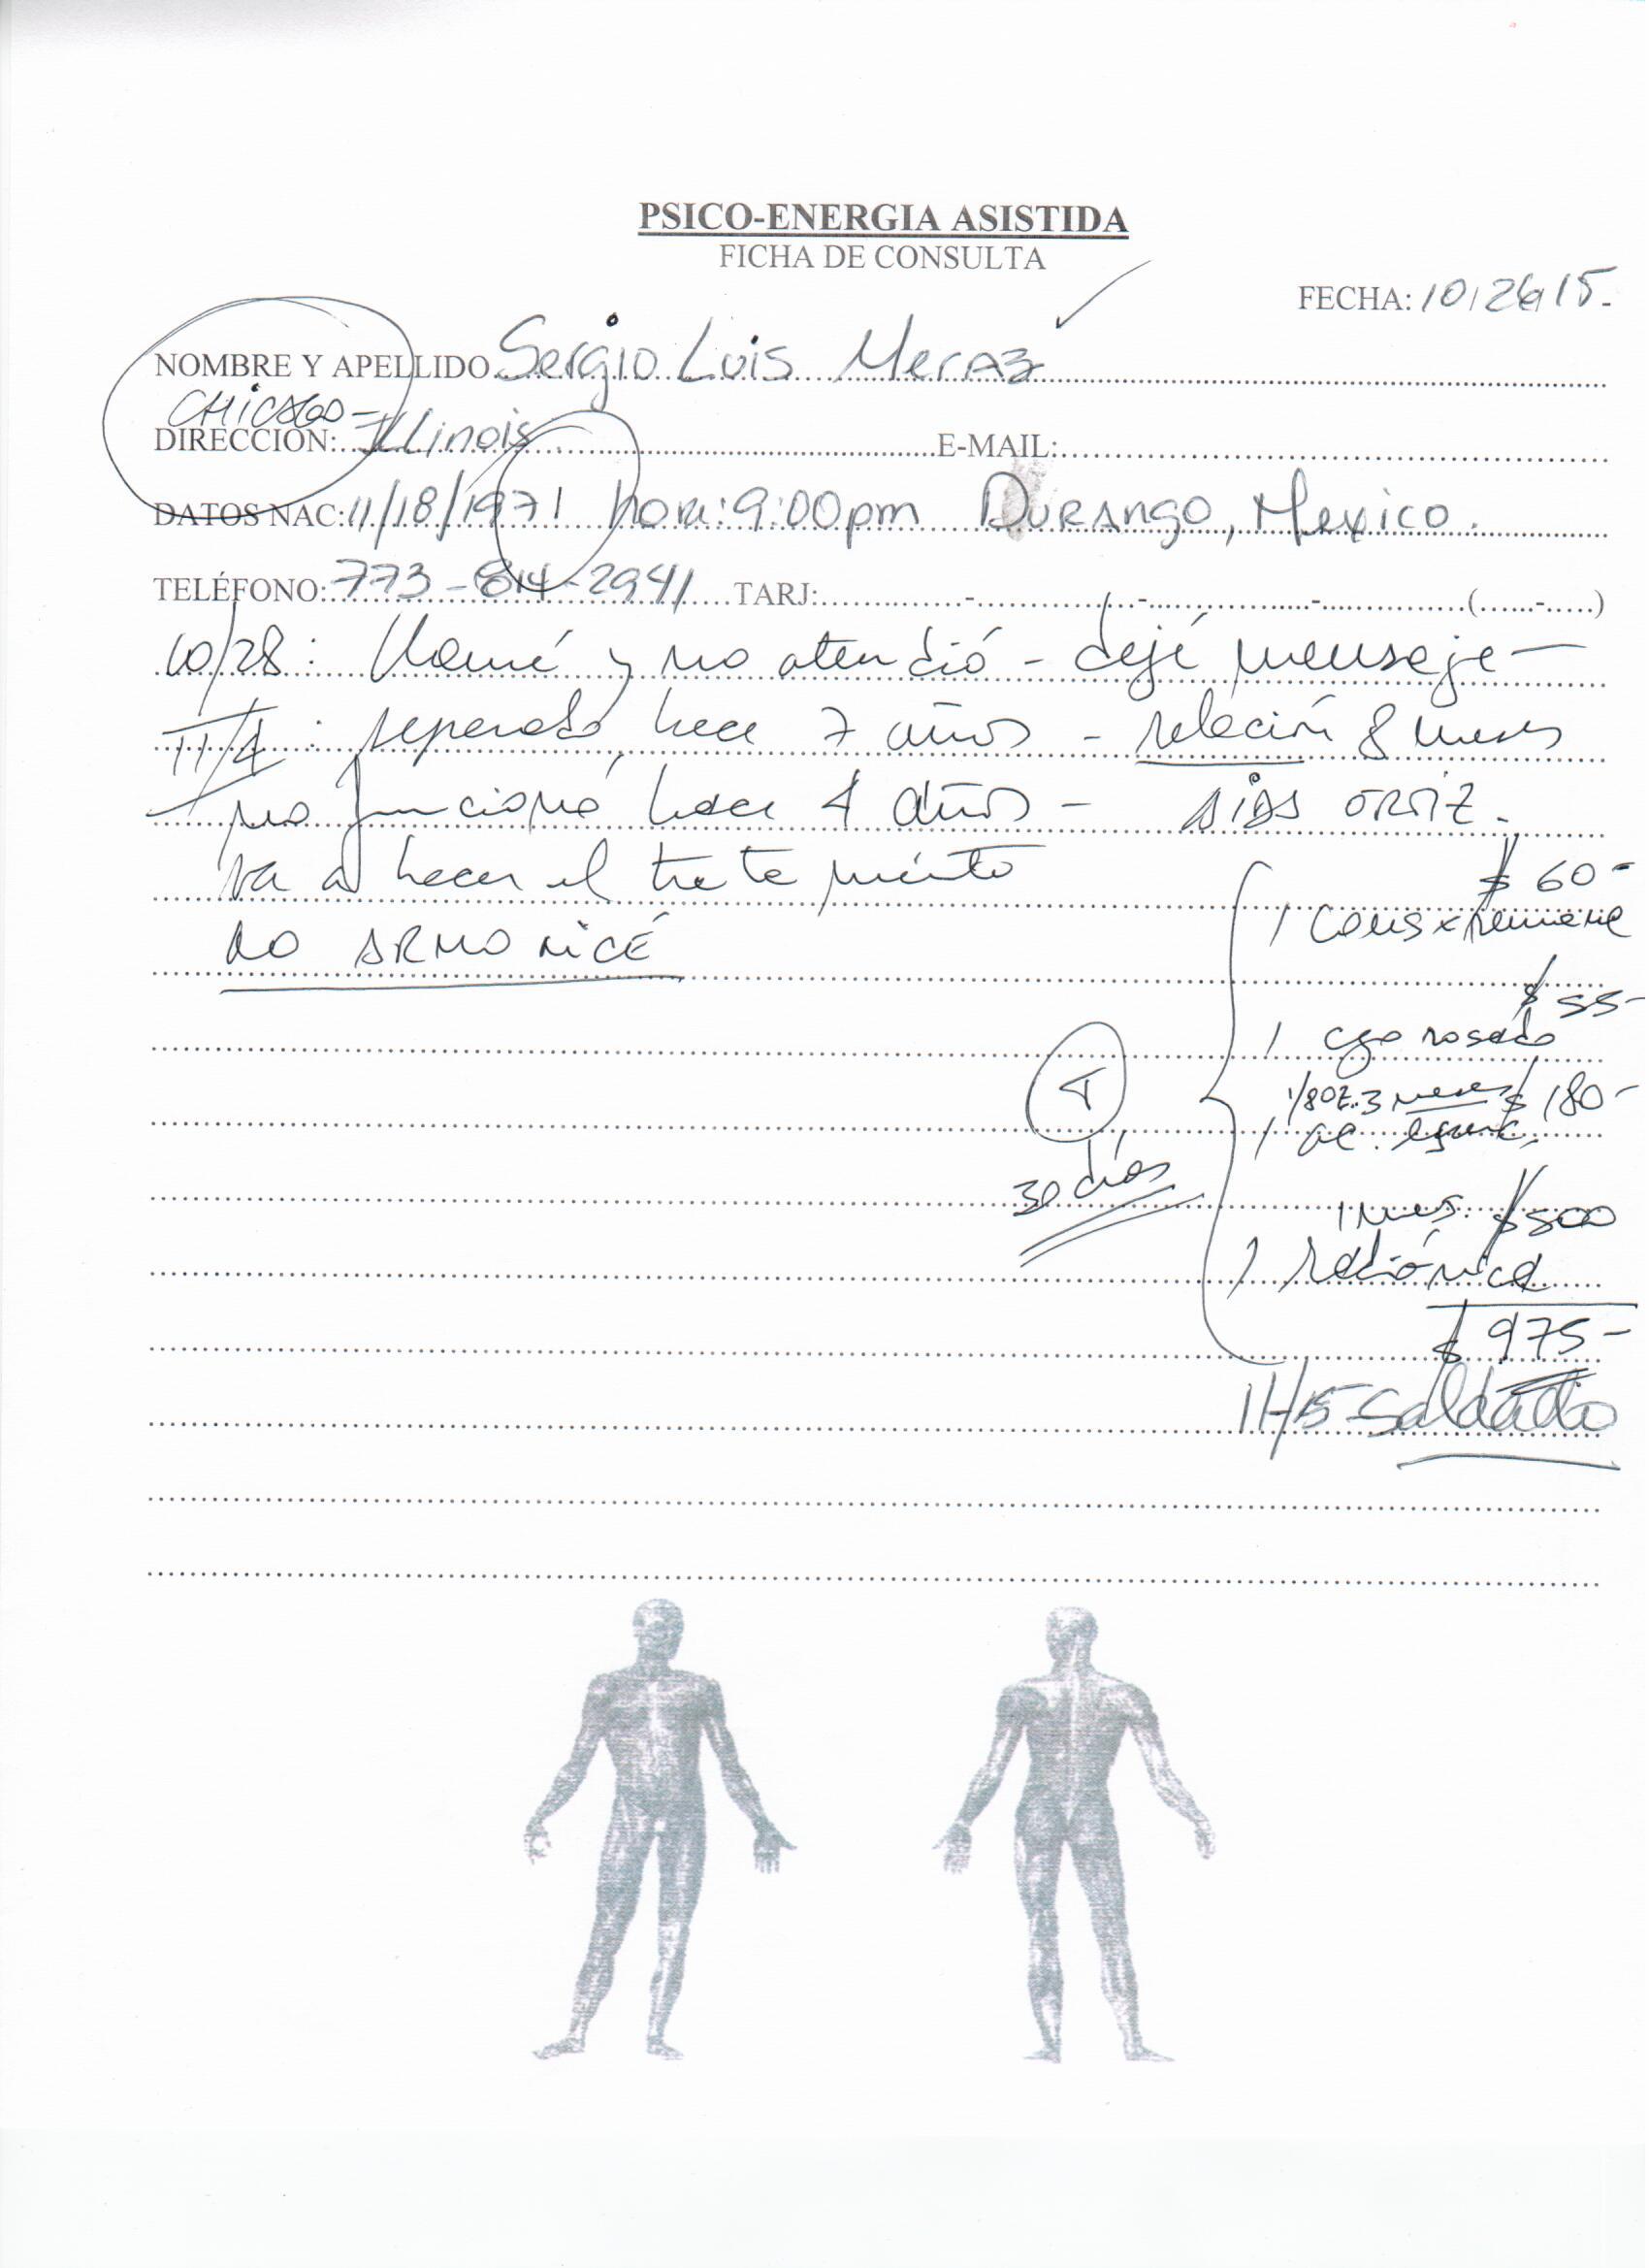 PSICO-ENERGIA ASISTIDA
FICHA DE CONSULTA
FECHA: 10/26/15.
NOMBRE Y APELLIDO Sergio Luis Meraz
CHICAGO -
DIRECCIÓN: Illinois E-MAIL:
DATOS NAC: 11/18/1971 hora: 9:00pm Durango, Mexico.
TELÉFONO: 773-814-2941 TARJ: - - - ( - )
10/28: llamé y no atendió - dejé mensaje -
11/4: separado hace 7 años - relación 8 meses
no funcionó hace 4 años - ORTIZ.
va a hacer el tratamiento
NO ARMONICÉ
$ 60-
1 cons x semana
$ 55-
1 cgo rosado
3 meses $ 180-
1
T
30 días
1 mes. $ 500
1 radiónica
$ 975-
11/15 Saldado